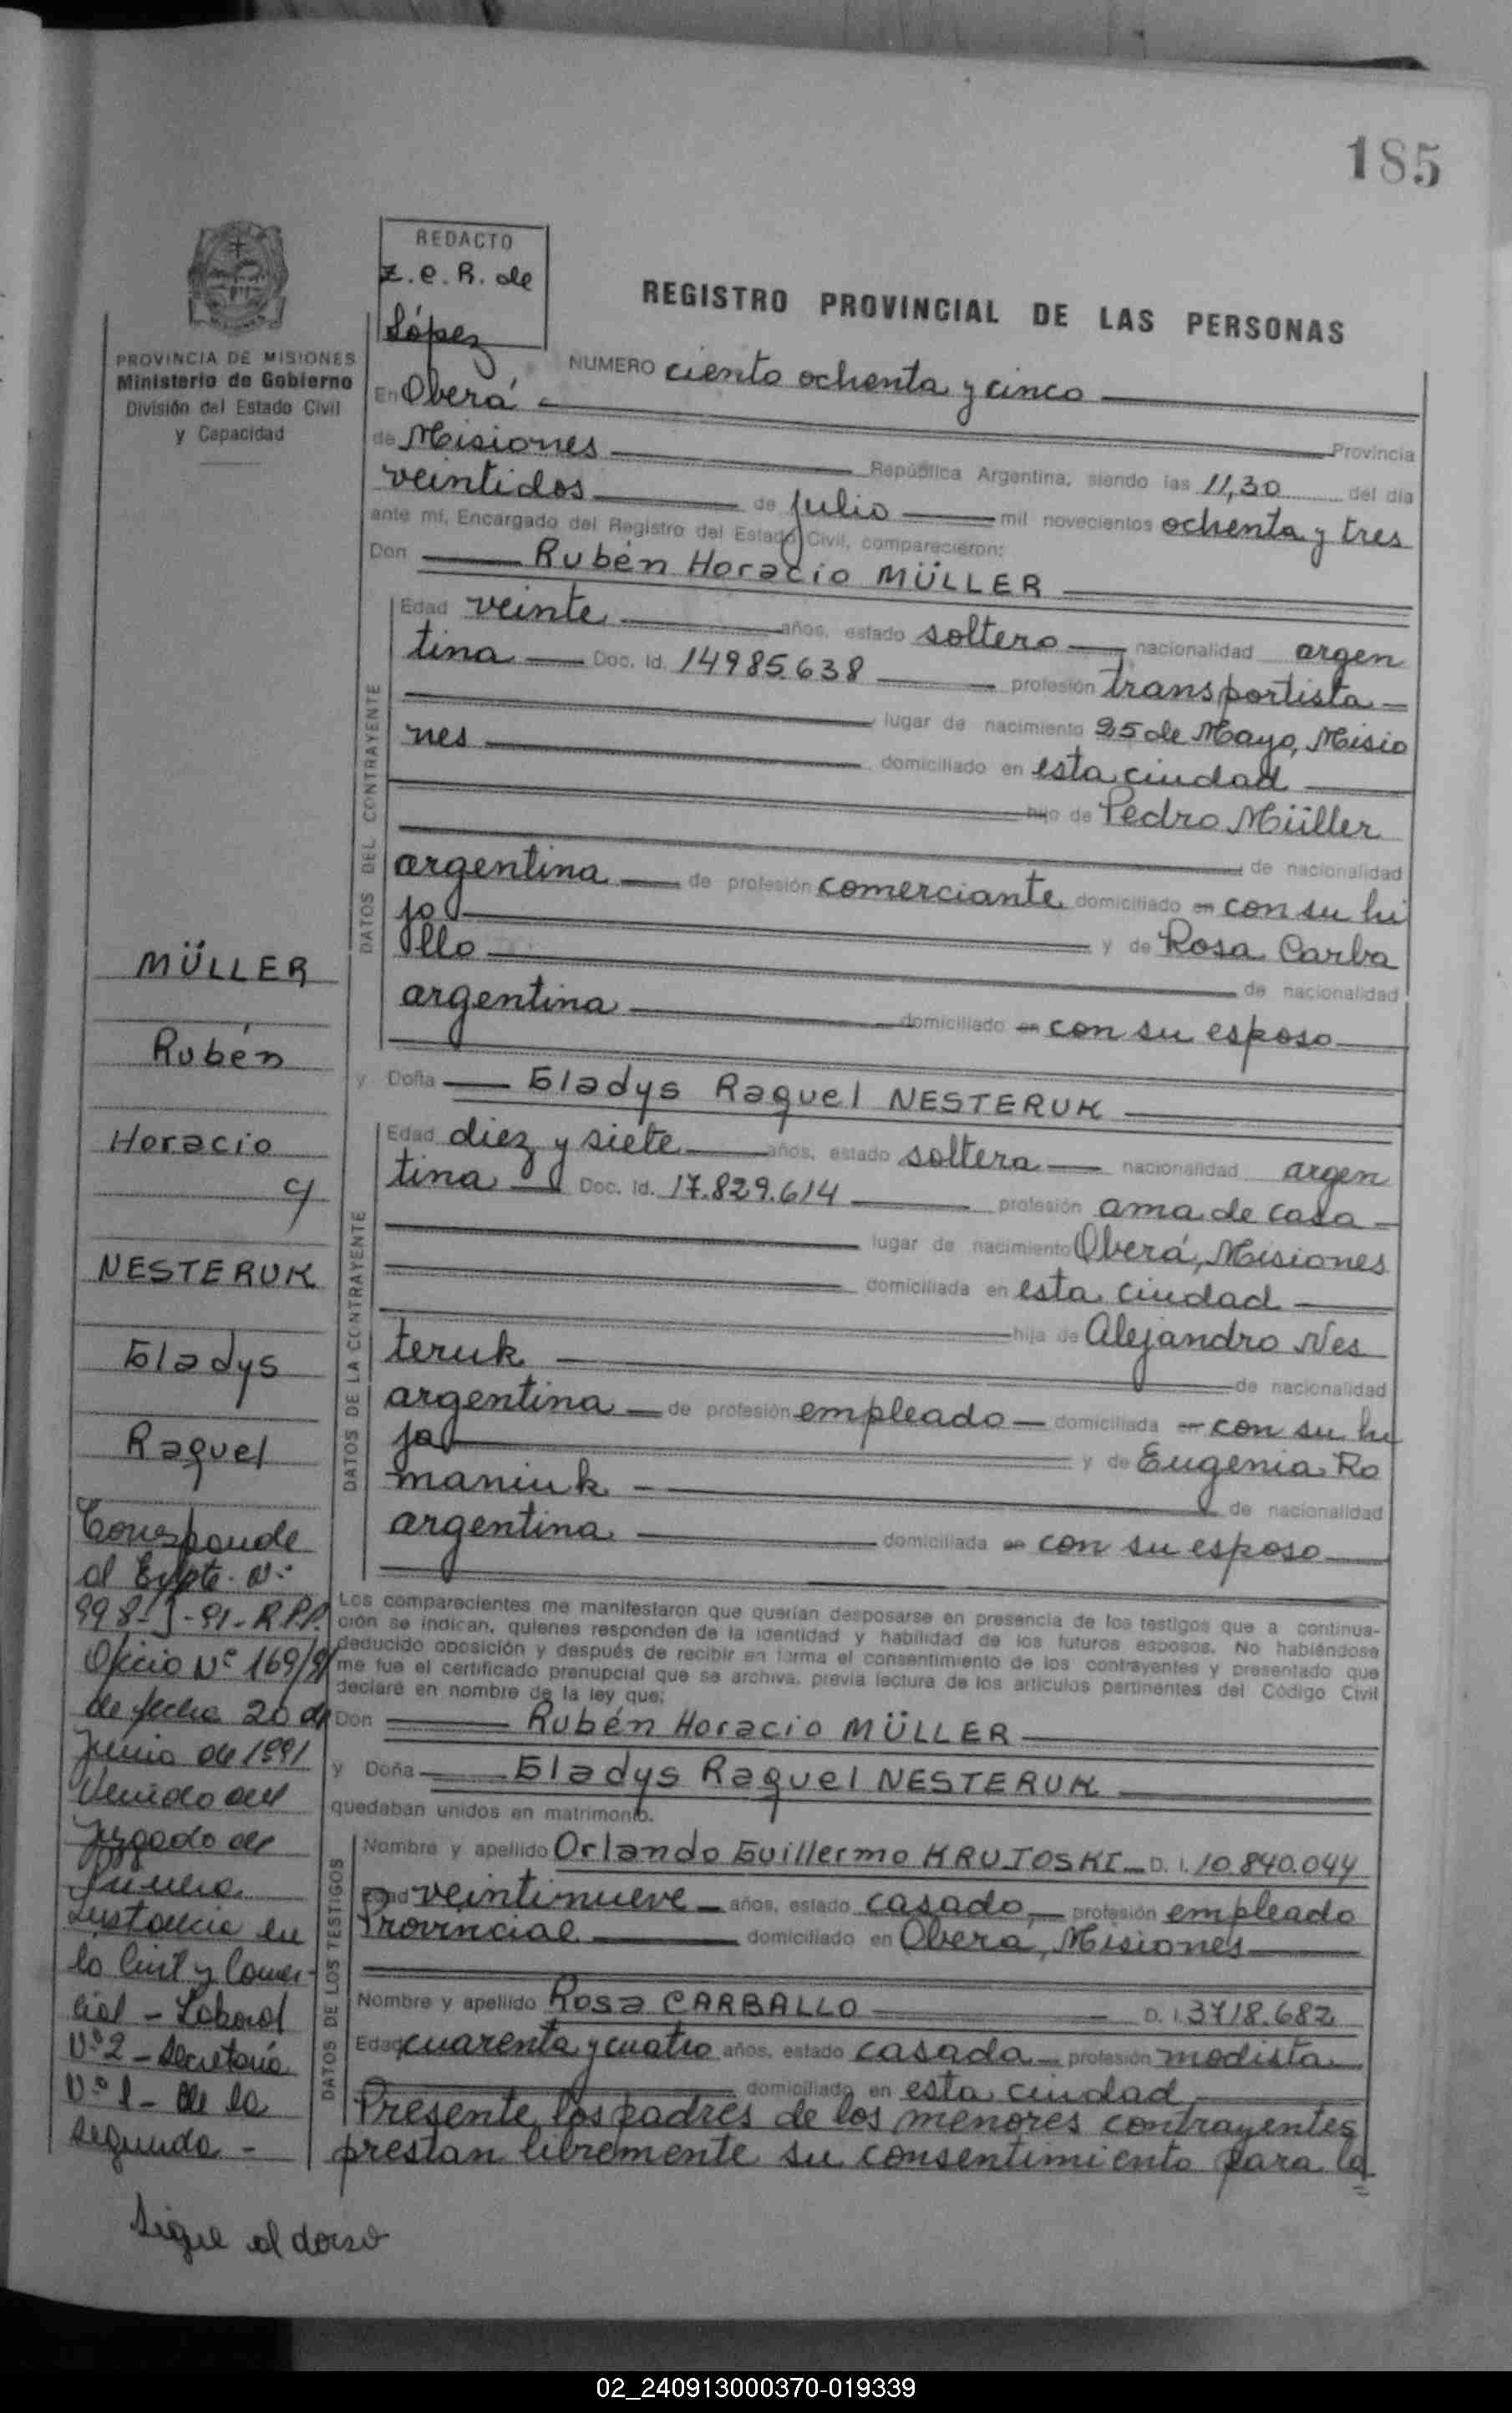 185
REDACTO
Z.e.R. de
López
REGISTRO PROVINCIAL DE LAS PERSONAS
PROVINCIA DE MISIONES
Ministerio de Gobierno
División del Estado Civil
y Capacidad
NUMERO ciento ochenta y cinco
En Oberá
Provincia
de Misiones República Argentina, siendo las 11,30 del día
veintidos de julio mil novecientos ochenta y tres
ante mí, Encargado del Registro del Estado Civil, comparecieron:
Don Rubén Horacio MÜLLER
DATOS DEL CONTRAYENTE
Edad veinte años, estado soltero nacionalidad argen
tina Doc. Id. 14985.638 profesión transportista
lugar de nacimiento 25 de Mayo, Misio
nes domiciliado en esta ciudad
hijo de Pedro Müller
de nacionalidad
argentina de profesión comerciante domiciliado en con su hi
jo y de Rosa Carba
llo de nacionalidad
argentina domiciliado en con su esposo
y Doña Gladys Raquel NESTERUK
DATOS DE LA CONTRAYENTE
Edad diez y siete años, estado soltera nacionalidad argen
tina Doc. Id. 17.829.614 profesión ama de casa
lugar de nacimiento Oberá, Misiones
domiciliada en esta ciudad
hija de Alejandro Nes
teruk de nacionalidad
argentina de profesión empleado domiciliada en con su hi
ja y de Eugenia Ro
maniuk de nacionalidad
argentina domiciliada en con su esposo
Los comparecientes me manifestaron que querían desposarse en presencia de los testigos que a continua-
ción se indican, quienes responden de la identidad y habilidad de los futuros esposos. No habiéndose
deducido oposición y después de recibir en forma el consentimiento de los contrayentes y presentado que
me fue el certificado prenupcial que se archiva, previa lectura de los artículos pertinentes del Código Civil
declaré en nombre de la ley que;
Don Rubén Horacio MÜLLER
y Doña Gladys Raquel NESTERUK
quedaban unidos en matrimonio.
DATOS DE LOS TESTIGOS
Nombre y apellido Orlando Guillermo KRUJOSKI D. I. 10.840.044
Edad veintinueve años, estado casado, profesión empleado
Provincial domiciliado en Oberá, Misiones
Nombre y apellido Rosa CARBALLO D. I. 3718.682
Edad cuarenta y cuatro años, estado casada profesión modista
domiciliada en esta ciudad
Presente los padres de los menores contrayentes
prestan libremente su consentimiento para la
MÜLLER
Rubén
Horacio
y
NESTERUK
Gladys
Raquel
Corresponde
al Expte. Nº
998-J-91-R.P.P.
Oficio Nº 169/91
de fecha 20 de
Junio de 1991
Venido del
Juzgado de
Primera
Instancia en
lo Civil y Comer-
cial - Laboral
Nº 2 - Secretaría
Nº 1 - de la
segunda -
Sigue al dorso
02_240913000370-019339